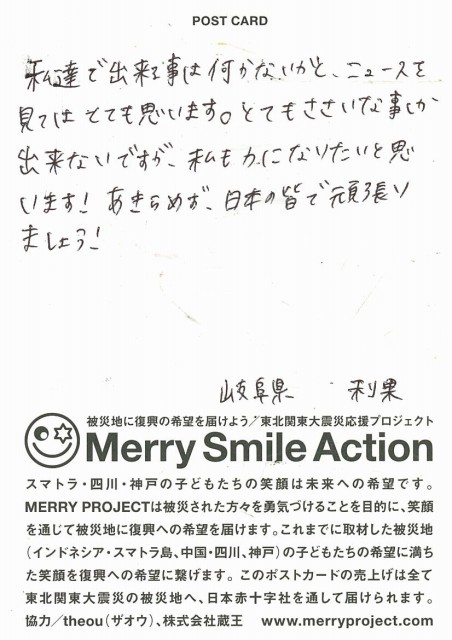 POST CARD
私達で出来る事は何かないかと、ニュースを
見てはとても思います。とてもささいな事しか
出来ないですが、私も力になりたいと思
います！あきらめず、日本の皆で頑張り
ましょう！
岐阜県 利果
被災地に復興の希望を届けよう／東北関東大震災応援プロジェクト
Merry Smile Action
スマトラ・四川・神戸の子どもたちの笑顔は未来への希望です。
MERRY PROJECTは被災された方々を勇気づけることを目的に、笑顔
を通じて被災地に復興への希望を届けます。これまでに取材した被災地
（インドネシア・スマトラ島、中国・四川、神戸）の子どもたちの希望に満ち
た笑顔を復興への希望に繋げます。このポストカードの売上げは全て
東北関東大震災の被災地へ、日本赤十字社を通して届けられます。
協力／theou（ザオウ）、株式会社蔵王 www.merryproject.com